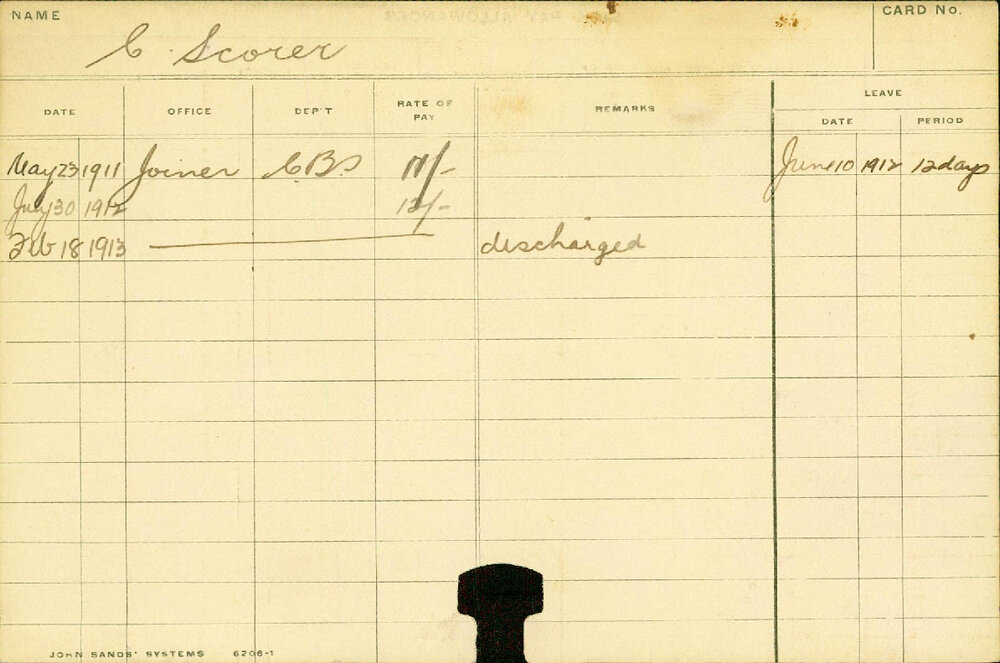 NAME
CARD No.
C Scorer
LEAVE
DATE OFFICE DEP'T RATE OF PAY REMARKS DATE PERIOD
May 23 1911 Joiner CBS 11/- June 10 1912 12 days
July 30 1912 12/-
Feb 18 1913 discharged
JOHN SANDS' SYSTEMS 6206-1